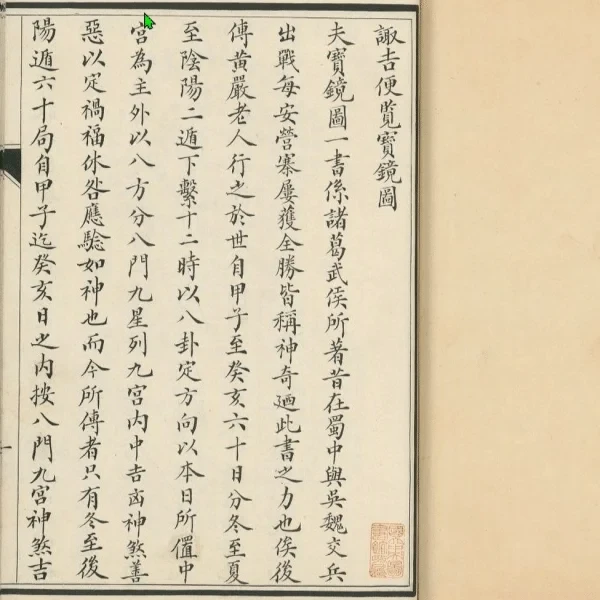 諏吉便覧寳鏡圖
夫寳鏡圖一書係諸葛武侯所著昔在蜀中與吳魏交兵
出戰每安營寨屢獲全勝皆稱神奇迺此書之力也侯後
傳黃嚴老人行之於世自甲子至癸亥六十日分冬至夏
至陰陽二遁下繫十二時以八卦定方向以本日所值中
宮為主外以八方分八門九星列九宮內中吉凶神煞善
惡以定禍福休咎應驗如神也而今所傳者只有冬至後
陽遁六十局自甲子迄癸亥日之內按八門九宮神煞吉